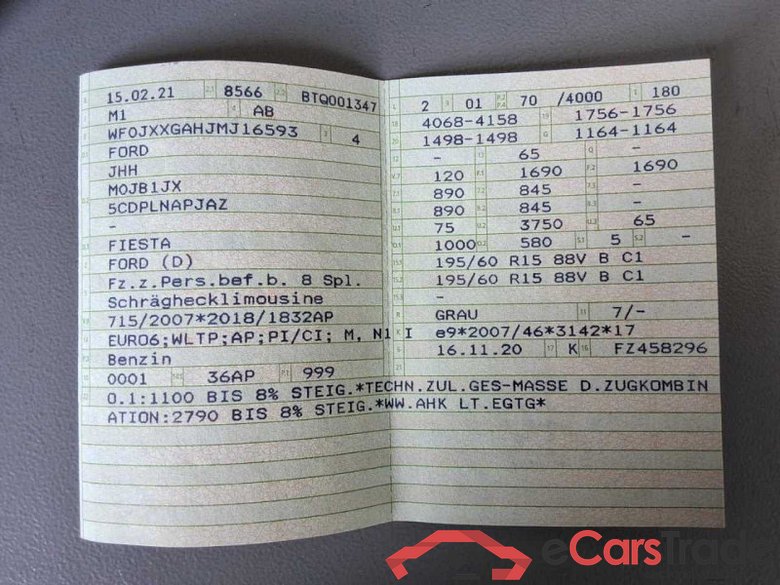 15.02.21 8566 BTQ001347
M1 AB
WF0JXXGAHJMJ16593 4
FORD
JHH
M0JB1JX
5CDPLNAPJAZ
-
FIESTA
FORD (D)
Fz.z.Pers.bef.b. 8 Spl.
Schräghecklimousine
715/2007*2018/1832AP
EURO6;WLTP;AP;PI/CI; M, N1 I
Benzin
0001 36AP 999
O.1:1100 BIS 8% STEIG.*TECHN.ZUL.GES-MASSE D.ZUGKOMBIN
ATION:2790 BIS 8% STEIG.*WW.AHK LT.EGTG*
2 01 70 /4000 180
4068-4158 1756-1756
1498-1498 1164-1164
- 65 -
120 1690 1690
890 845 -
890 845 -
75 3750 65
1000 580 5 -
195/60 R15 88V B C1
195/60 R15 88V B C1
-
GRAU 7/-
e9*2007/46*3142*17
16.11.20 K FZ458296
eCarsTrade